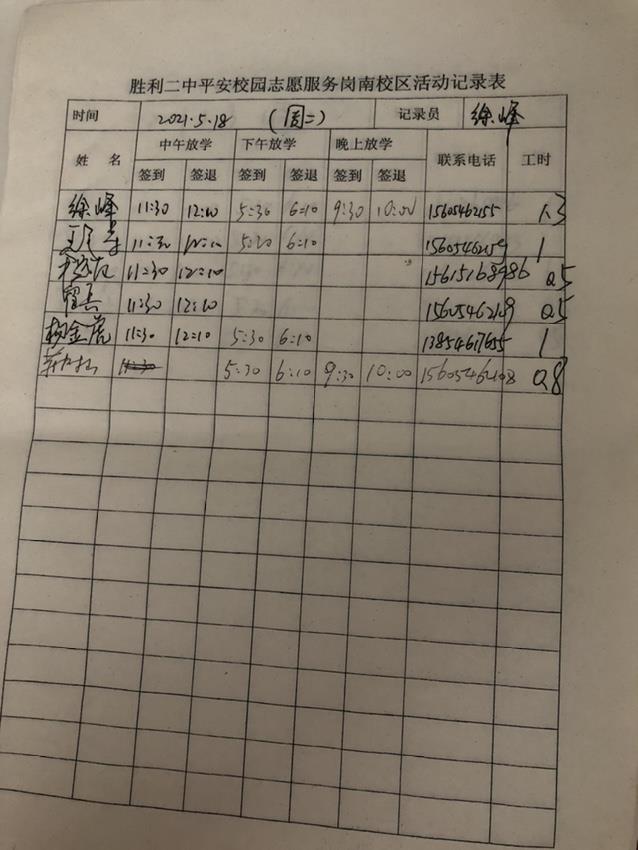 胜利二中平安校园志愿服务岗南校区活动记录表
时间 2021.5.18 (周二) 记录员 徐峰
姓名 中午放学 下午放学 晚上放学 联系电话 工时
签到 签退 签到 签退 签到 签退
徐峰 11:30 12:10 5:30 6:10 9:30 10:00 15605462155 1.3
11:30 12:10 5:30 6:10 1
11:30 12:10 15615168986 0.5
11:30 12:10 0.5
杨金虎 11:30 12:10 5:30 6:10 13854617655 1
11:30 5:30 6:10 9:30 10:00 15605462108 0.8